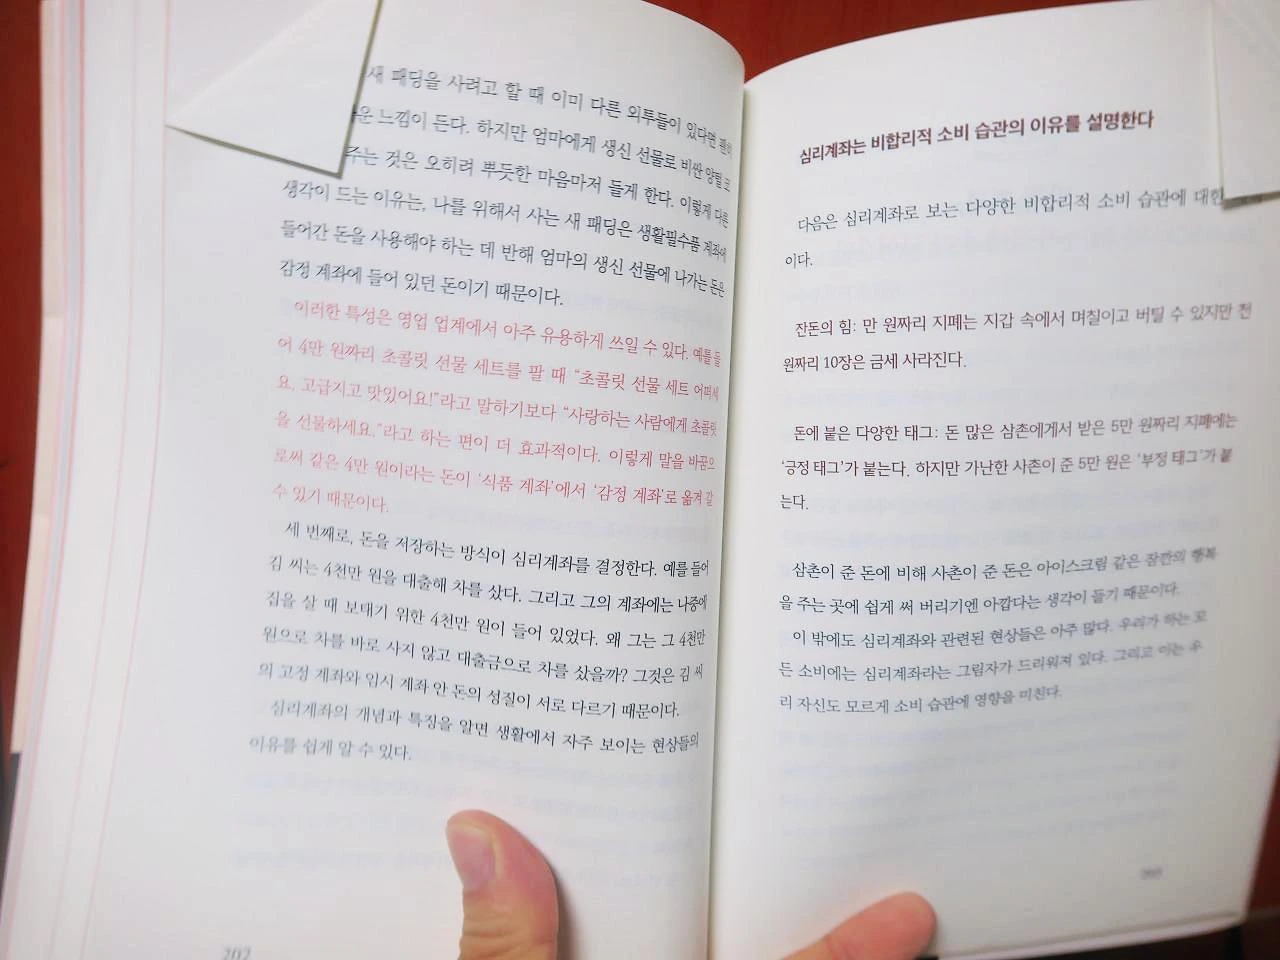 새 패딩을 사려고 할 때 이미 다른 외투들이 있다면 괜히
느낌이 든다. 하지만 엄마에게 생신 선물로 비싼 양털 코
주는 것은 오히려 뿌듯한 마음마저 들게 한다. 이렇게 다른
생각이 드는 이유는, 나를 위해서 사는 새 패딩은 생활필수품 계좌에
들어간 돈을 사용해야 하는 데 반해 엄마의 생신 선물에 나가는 돈은
감정 계좌에 들어 있던 돈이기 때문이다.
이러한 특성은 영업 업계에서 아주 유용하게 쓰일 수 있다. 예를 들
어 4만 원짜리 초콜릿 선물 세트를 팔 때 “초콜릿 선물 세트 어떠세
요. 고급지고 맛있어요!”라고 말하기보다 “사랑하는 사람에게 초콜릿
을 선물하세요.”라고 하는 편이 더 효과적이다. 이렇게 말을 바꿈으
로써 같은 4만 원이라는 돈이 ‘식품 계좌’에서 ‘감정 계좌’로 옮겨 갈
수 있기 때문이다.
세 번째로, 돈을 저장하는 방식이 심리계좌를 결정한다. 예를 들어
김 씨는 4천만 원을 대출해 차를 샀다. 그리고 그의 계좌에는 나중에
집을 살 때 보태기 위한 4천만 원이 들어 있었다. 왜 그는 그 4천만
원으로 차를 바로 사지 않고 대출금으로 차를 샀을까? 그것은 김 씨
의 고정 계좌와 임시 계좌 안 돈의 성질이 서로 다르기 때문이다.
심리계좌의 개념과 특징을 알면 생활에서 자주 보이는 현상들의
이유를 쉽게 알 수 있다.
202
심리계좌는 비합리적 소비 습관의 이유를 설명한다
다음은 심리계좌로 보는 다양한 비합리적 소비 습관에 대한
이다.
잔돈의 힘: 만 원짜리 지폐는 지갑 속에서 며칠이고 버틸 수 있지만 천
원짜리 10장은 금세 사라진다.
돈에 붙은 다양한 태그: 돈 많은 삼촌에게서 받은 5만 원짜리 지폐에는
‘긍정 태그’가 붙는다. 하지만 가난한 사촌이 준 5만 원은 ‘부정 태그’가 붙
는다.
삼촌이 준 돈에 비해 사촌이 준 돈은 아이스크림 같은 잠깐의 행복
을 주는 곳에 쉽게 써 버리기엔 아깝다는 생각이 들기 때문이다.
이 밖에도 심리계좌와 관련된 현상들은 아주 많다. 우리가 하는 모
든 소비에는 심리계좌라는 그림자가 드리워져 있다. 그리고 이는 우
리 자신도 모르게 소비 습관에 영향을 미친다.